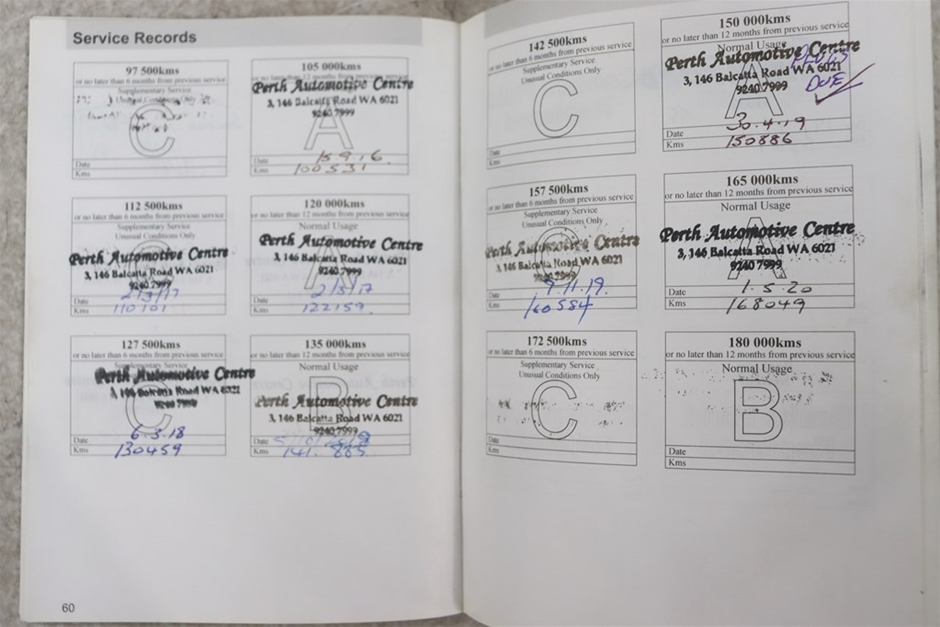 Service Records
97 500kms
or no later than 6 months from previous service
Supplementary Service
Unusual Conditions Only
C
Date
Kms
105 000kms
or no later than 12 months from previous service
Perth Automotive Centre
3, 146 Balcatta Road WA 6021
9240 7999
A
Date 15.9.16
Kms 100531
112 500kms
or no later than 6 months from previous service
Supplementary Service
Unusual Conditions Only
Perth Automotive Centre
3, 146 Balcatta Road WA 6021
9240 7999
Date 2/3/17
Kms 110101
120 000kms
or no later than 12 months from previous service
Normal Usage
Perth Automotive Centre
3, 146 Balcatta Road WA 6021
9240 7999
A
Date 2/3/17
Kms 122159
127 500kms
or no later than 6 months from previous service
Supplementary Service
Perth Automotive Centre
3, 146 Balcatta Road WA 6021
9240 7999
C
Date 6.3.18
Kms 130459
135 000kms
or no later than 12 months from previous service
Normal Usage
B
Perth Automotive Centre
3, 146 Balcatta Road WA 6021
9240 7999
Date
Kms 141.885
60
142 500kms
or no later than 6 months from previous service
Supplementary Service
Unusual Conditions Only
C
Date
Kms
150 000kms
or no later than 12 months from previous service
Normal Usage
Perth Automotive Centre
3, 146 Balcatta Road WA 6021
9240 7999
DONE
A
Date 30.4.19
Kms 150886
157 500kms
or no later than 6 months from previous service
Supplementary Service
Unusual Conditions Only
Perth Automotive Centre
3, 146 Balcatta Road WA 6021
9240 7999
Date 9.11.19.
Kms 160584
165 000kms
or no later than 12 months from previous service
Normal Usage
Perth Automotive Centre
3, 146 Balcatta Road WA 6021
9240 7999
A
Date 1.5.20
Kms 168049
172 500kms
or no later than 6 months from previous service
Supplementary Service
Unusual Conditions Only
C
Date
Kms
180 000kms
or no later than 12 months from previous service
Normal Usage
B
Date
Kms